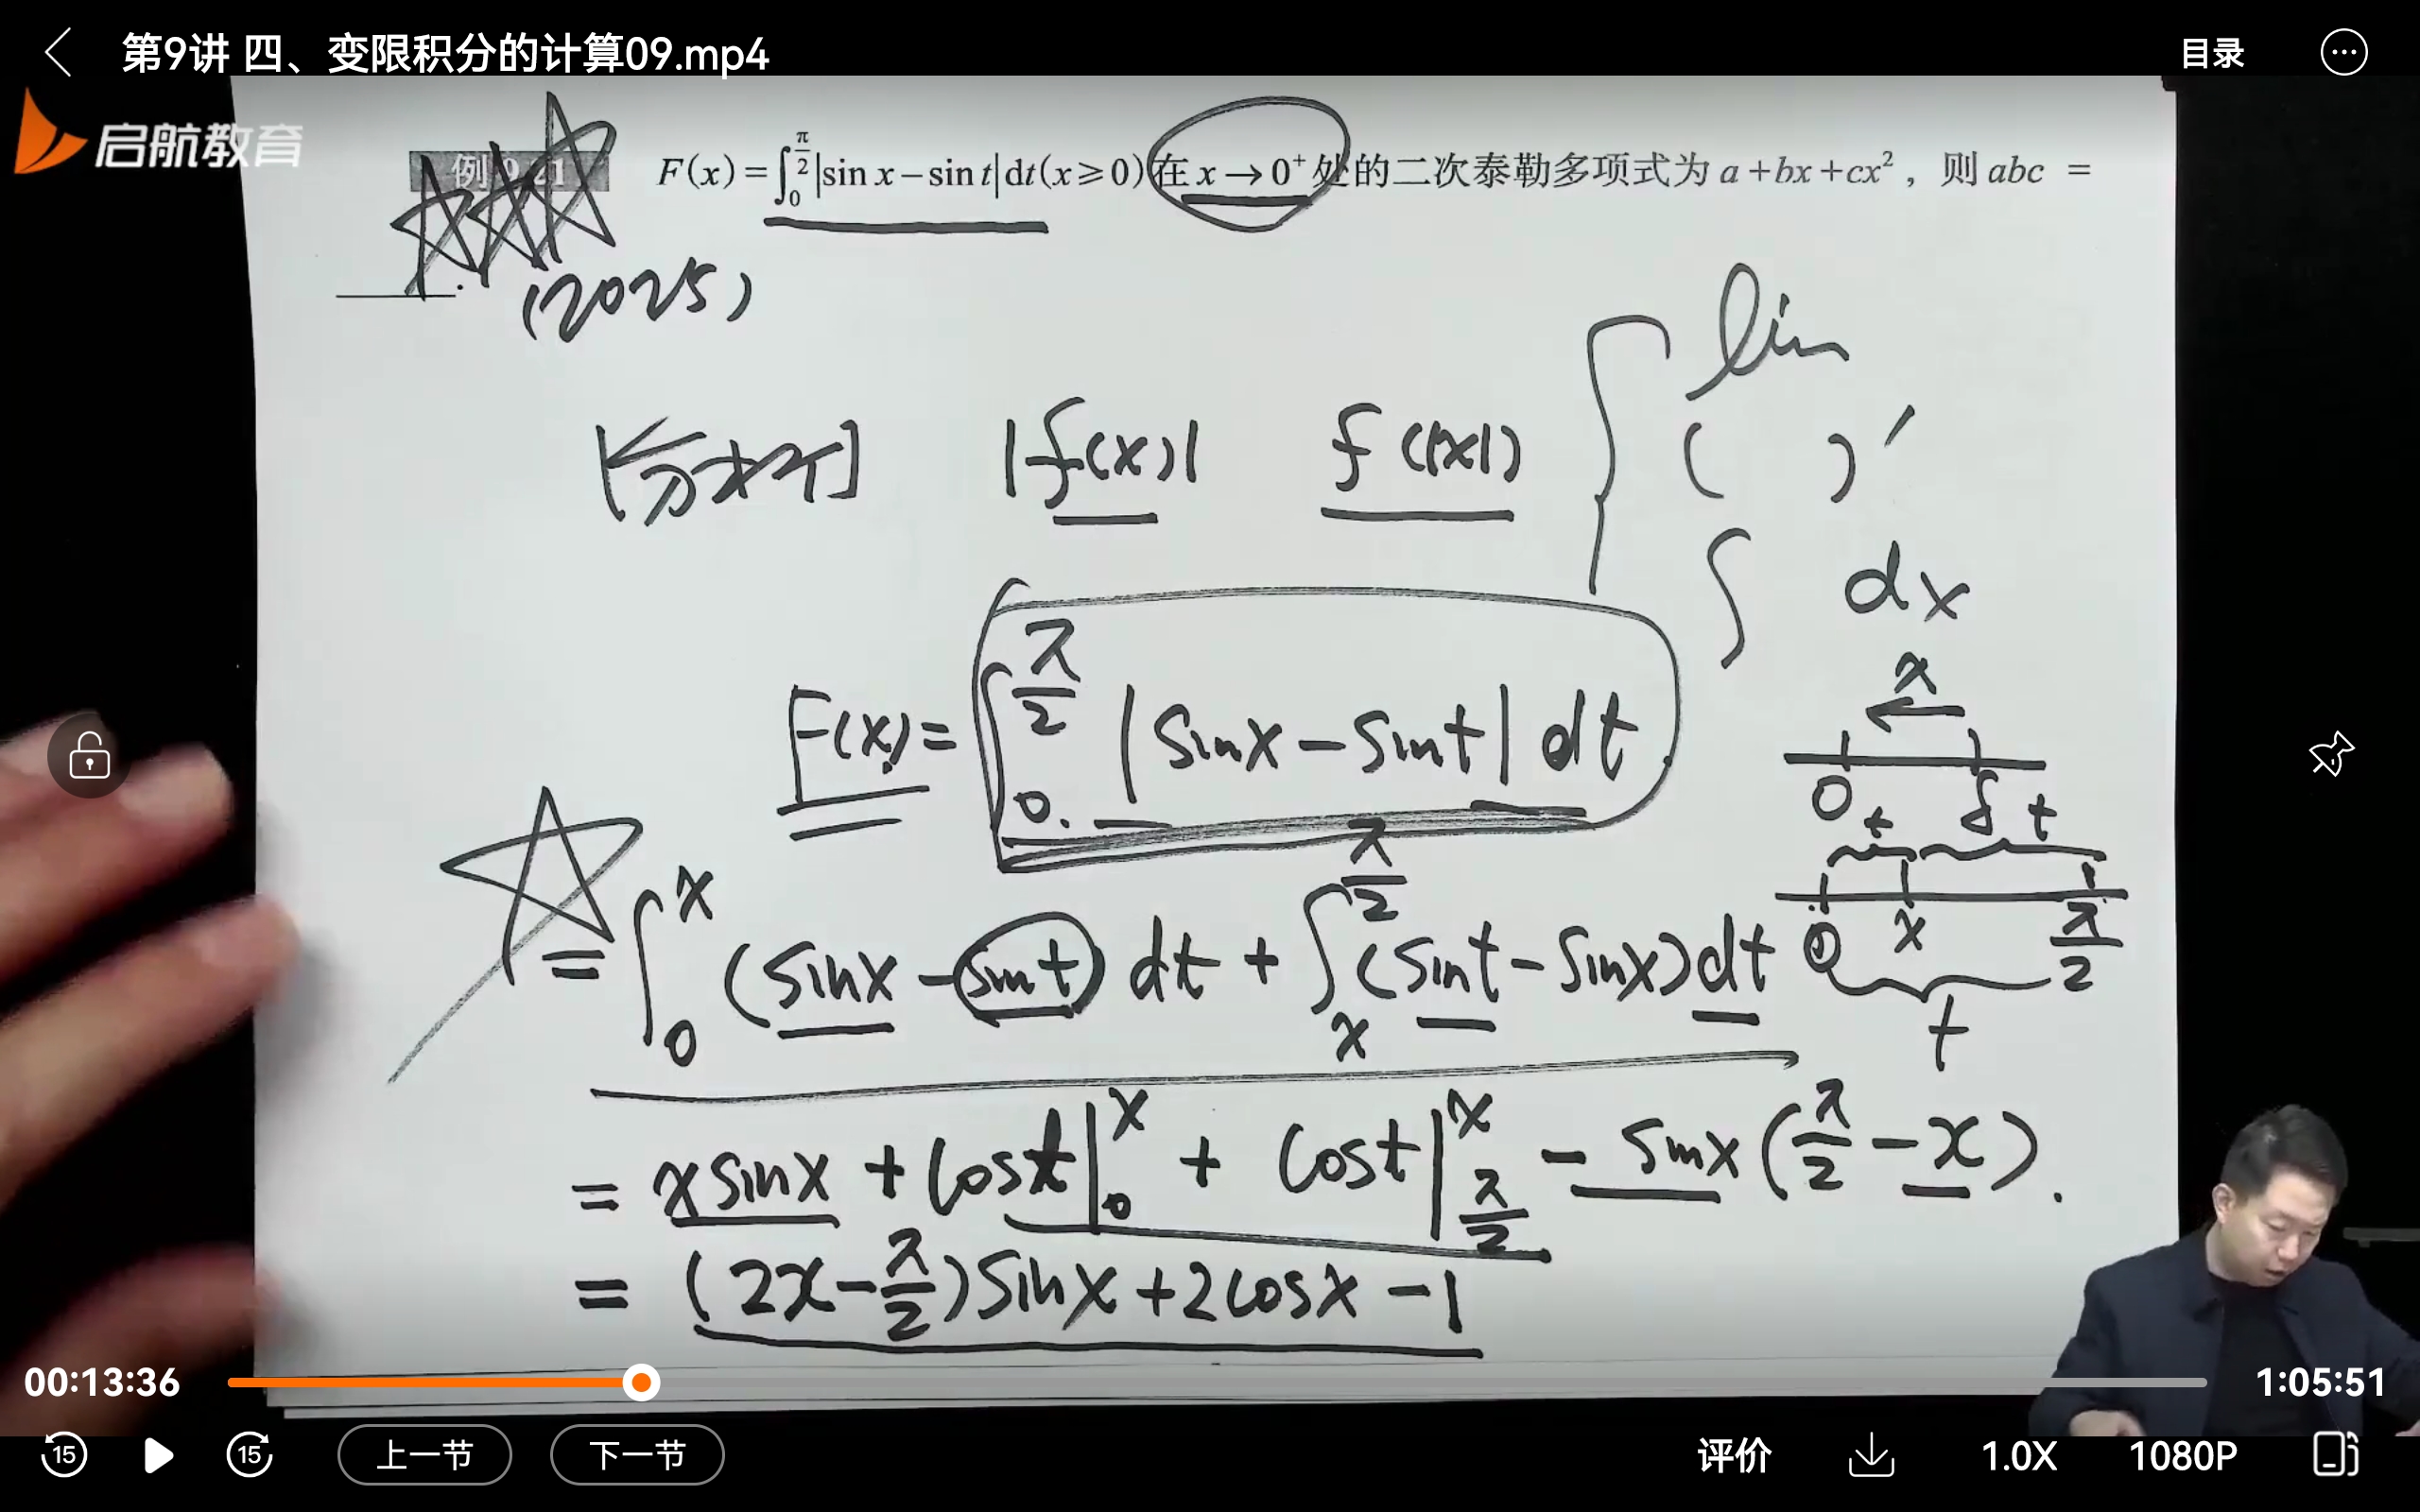 第9讲 四、变限积分的计算09.mp4
目录
启航教育
F(x)=∫₀^{π/2}|sin x−sin t|dt(x⩾0)在 x→0⁺ 处的二次泰勒多项式为 a+bx+cx², 则 abc =
(2025)
lim
[分析] |f(x)| f(|x|) ( )′
∫ dx
x
F(x)=∫₀^{π/2} |sinx−sint| dt
0 δ
t t
0 x π/2
t
=∫₀^x (sinx−sint) dt+∫_x^{π/2}(sint−sinx)dt
=xsinx+cost|₀^x+cost|_{π/2}^x−sinx(π/2−x).
=(2x−π/2)sinx+2cosx−1
00:13:36
1:05:51
15
15
上一节
下一节
评价
1.0X
1080P